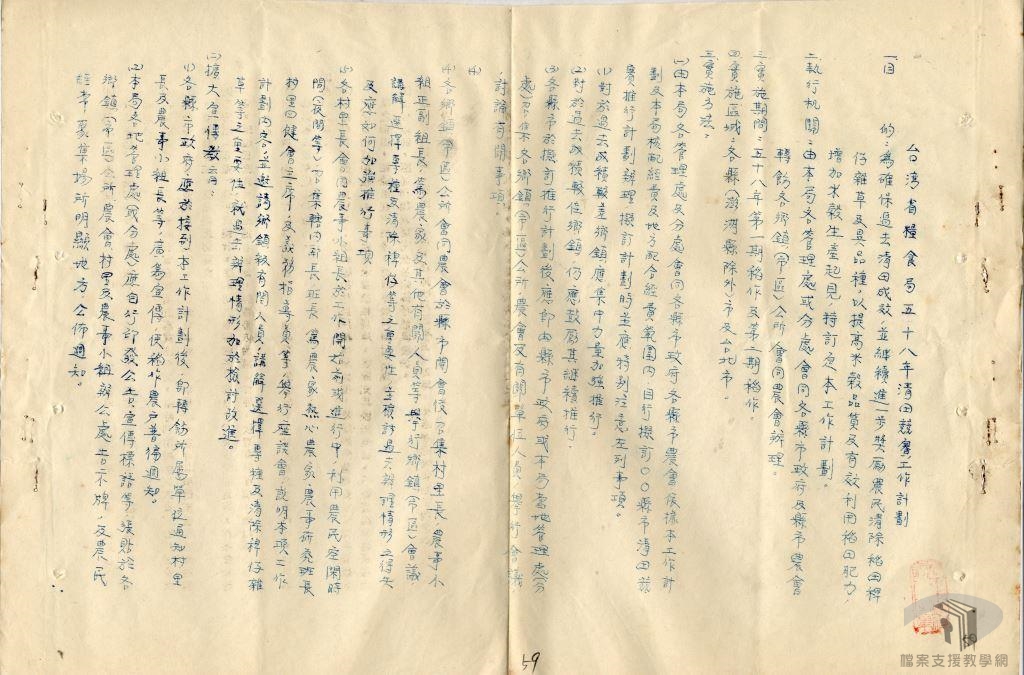 台湾省糧食局五十八年清田競賽工作計劃
一目　的：為確保過去清田成效，並繼續進一步獎勵農民清除稻田稗
仔雜草及異品種，以提高米穀品質及有效利用稻田肥力，
增加米穀生產起見，特訂定本工作計劃。
二執行机関：由本局各管理處或分處會同各縣市政府及縣市農會
轉飭各鄉鎮（市區）公所會同農會辦理。
三實施期間：五十八年第一期稻作及第二期稻作。
四實施區域：各縣（澎湖縣除外）市及台北市。
五實施方法：
(一)由本局各管理處及分處會同各縣市政府各縣市農會依據本工作計
劃及本局核配經費及地方配合經費範圍內自行擬訂〇〇縣市清田競
賽推行計劃辦理擬訂計劃時並應特別注意左列事項。
(1)對於過去成積較差鄉鎮應集中力量加強推行。
(2)對於過去成積較佳鄉鎮，仍應鼓勵其繼續推行。
(3)各縣市於擬訂推行計劃後，應即由縣市政府或本局當地管理處分
處）召集各鄉鎮（市區）公所農會及有関單位人員，舉行會議
討論有関事項。
(4)
(4)各鄉鎮（市區）公所會同農會於縣市開會後，召集村里長農事小
組正副組長，篤農家及其他有関人員等，舉行鄉鎮（市區）會議
講解選擇專種及清除稗仔等之重要性，並檢討過去辦理情形之得失
及應如何加強推行事項。
(5)各村里長會同農事小組長於工作開始前或進行中，利用農民空閑時
間（夜間等），召集轄內鄰長班長，篤農家，熱心農家，農事研究班長
村里四健會之序言，及義務指導員等，舉行座談會，說明本項工作
計劃內容，並邀請鄉鎮級有関人員，講解選擇專種及清除稗仔雜
草等之重要性，就過去辦理情形加於檢討改進。
(二)擴大宣傳教育：
(1)各縣市政府，應於接到本工作計劃後，即轉飭所屬單位通知村里
長及農事小組長等，廣為宣傳，使稻作農戶普徧週知。
(2)本局各地管理處（或分處）應自行印發公告，宣傳標語等，張貼於各
鄉鎮（市區）公所，農會，村里及農事小組辦公處，告示牌，及農民
經常聚集場所明顯地方公佈週知。
59
59
檔案支援教學網